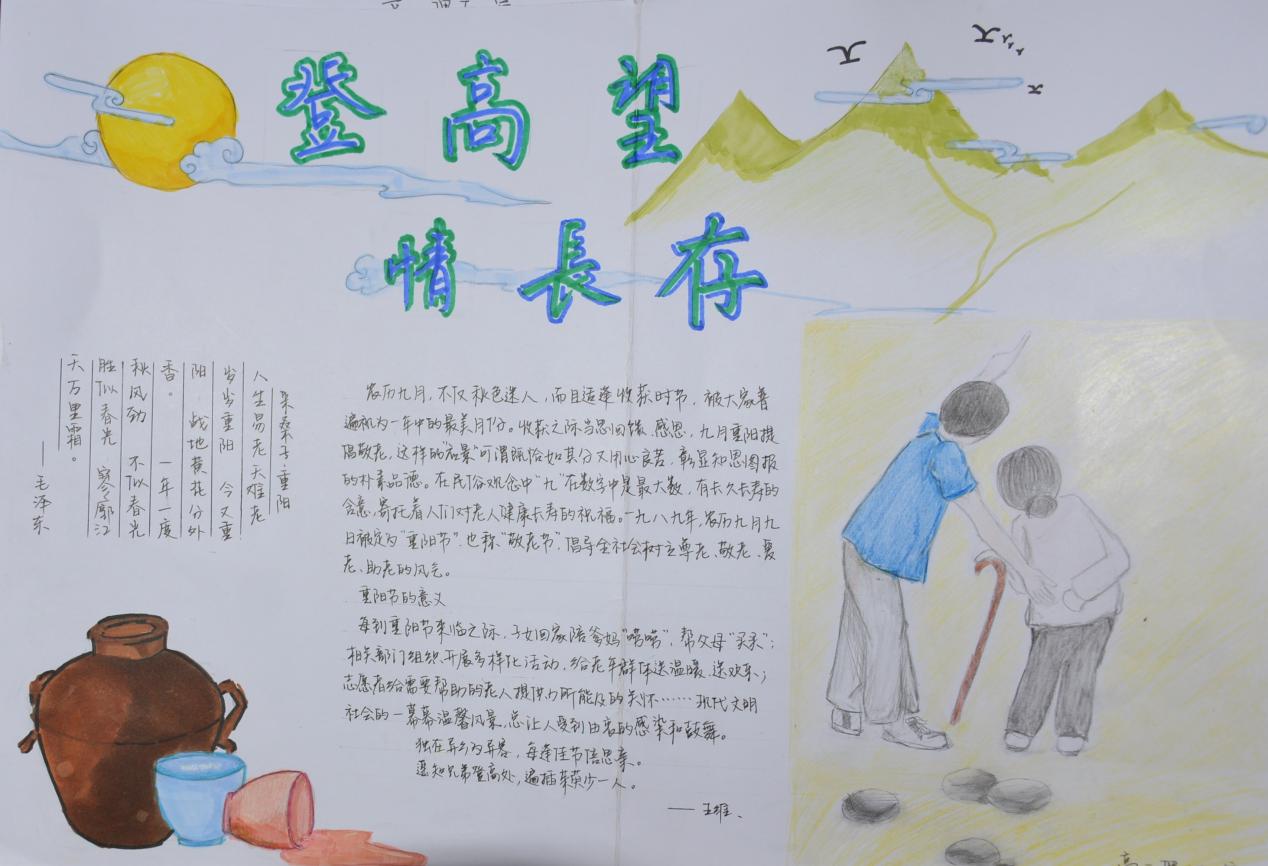 登高望
情長存
采桑子·重阳
人生易老天难老
岁岁重阳 今又重
阳 战地黄花分外
香。 一年一度
秋风劲 不似春光
胜似春光 寥廓江
天万里霜。
——毛泽东
农历九月,不仅秋色迷人,而且适逢收获时节,被大家普
遍视为一年中的最美月份。收获之际当思回馈、感恩,九月重阳提
倡敬老,这样的"应景"可谓既恰如其分又用心良苦,彰显知恩图报
的朴素品德。在民俗观念中"九"在数字中是最大数,有长久长寿的
含意,寄托着人们对老人健康长寿的祝福。一九八九年,农历九月九
日被定为"重阳节",也称"敬老节",倡导全社会树立尊老、敬老、爱
老、助老的风气。
重阳节的意义
每到重阳节来临之际,子女回家陪爸妈"唠唠",帮父母"买买";
相关部门组织开展多样化活动,给老年群体送温暖、送欢乐;
志愿者给需要帮助的老人提供力所能及的关怀……现代文明
社会的一幕幕温馨风景,总让人受到由衷的感染和鼓舞。
独在异乡为异客,每逢佳节倍思亲。
遥知兄弟登高处,遍插茱萸少一人。
——王维、